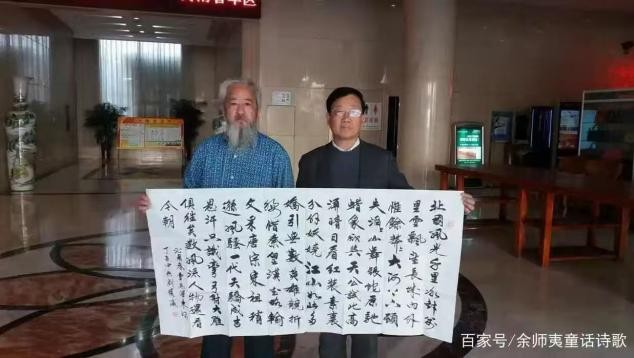 北國風光千里冰封万
里雪飘望長城内外
惟餘莽莽大河上下顿
失滔滔山舞银蛇原驰
蜡象欲与天公试比高
須晴日看红装素裹
分外妖娆江山如此多
嬌引无数英雄竞折
腰惜秦皇漢武略输
文采唐宗宋祖稍
逊風骚一代天骄成吉
思汗只識弯弓射大雕
俱往矣数風流人物還看
今朝
百家号/余师夷童话诗歌